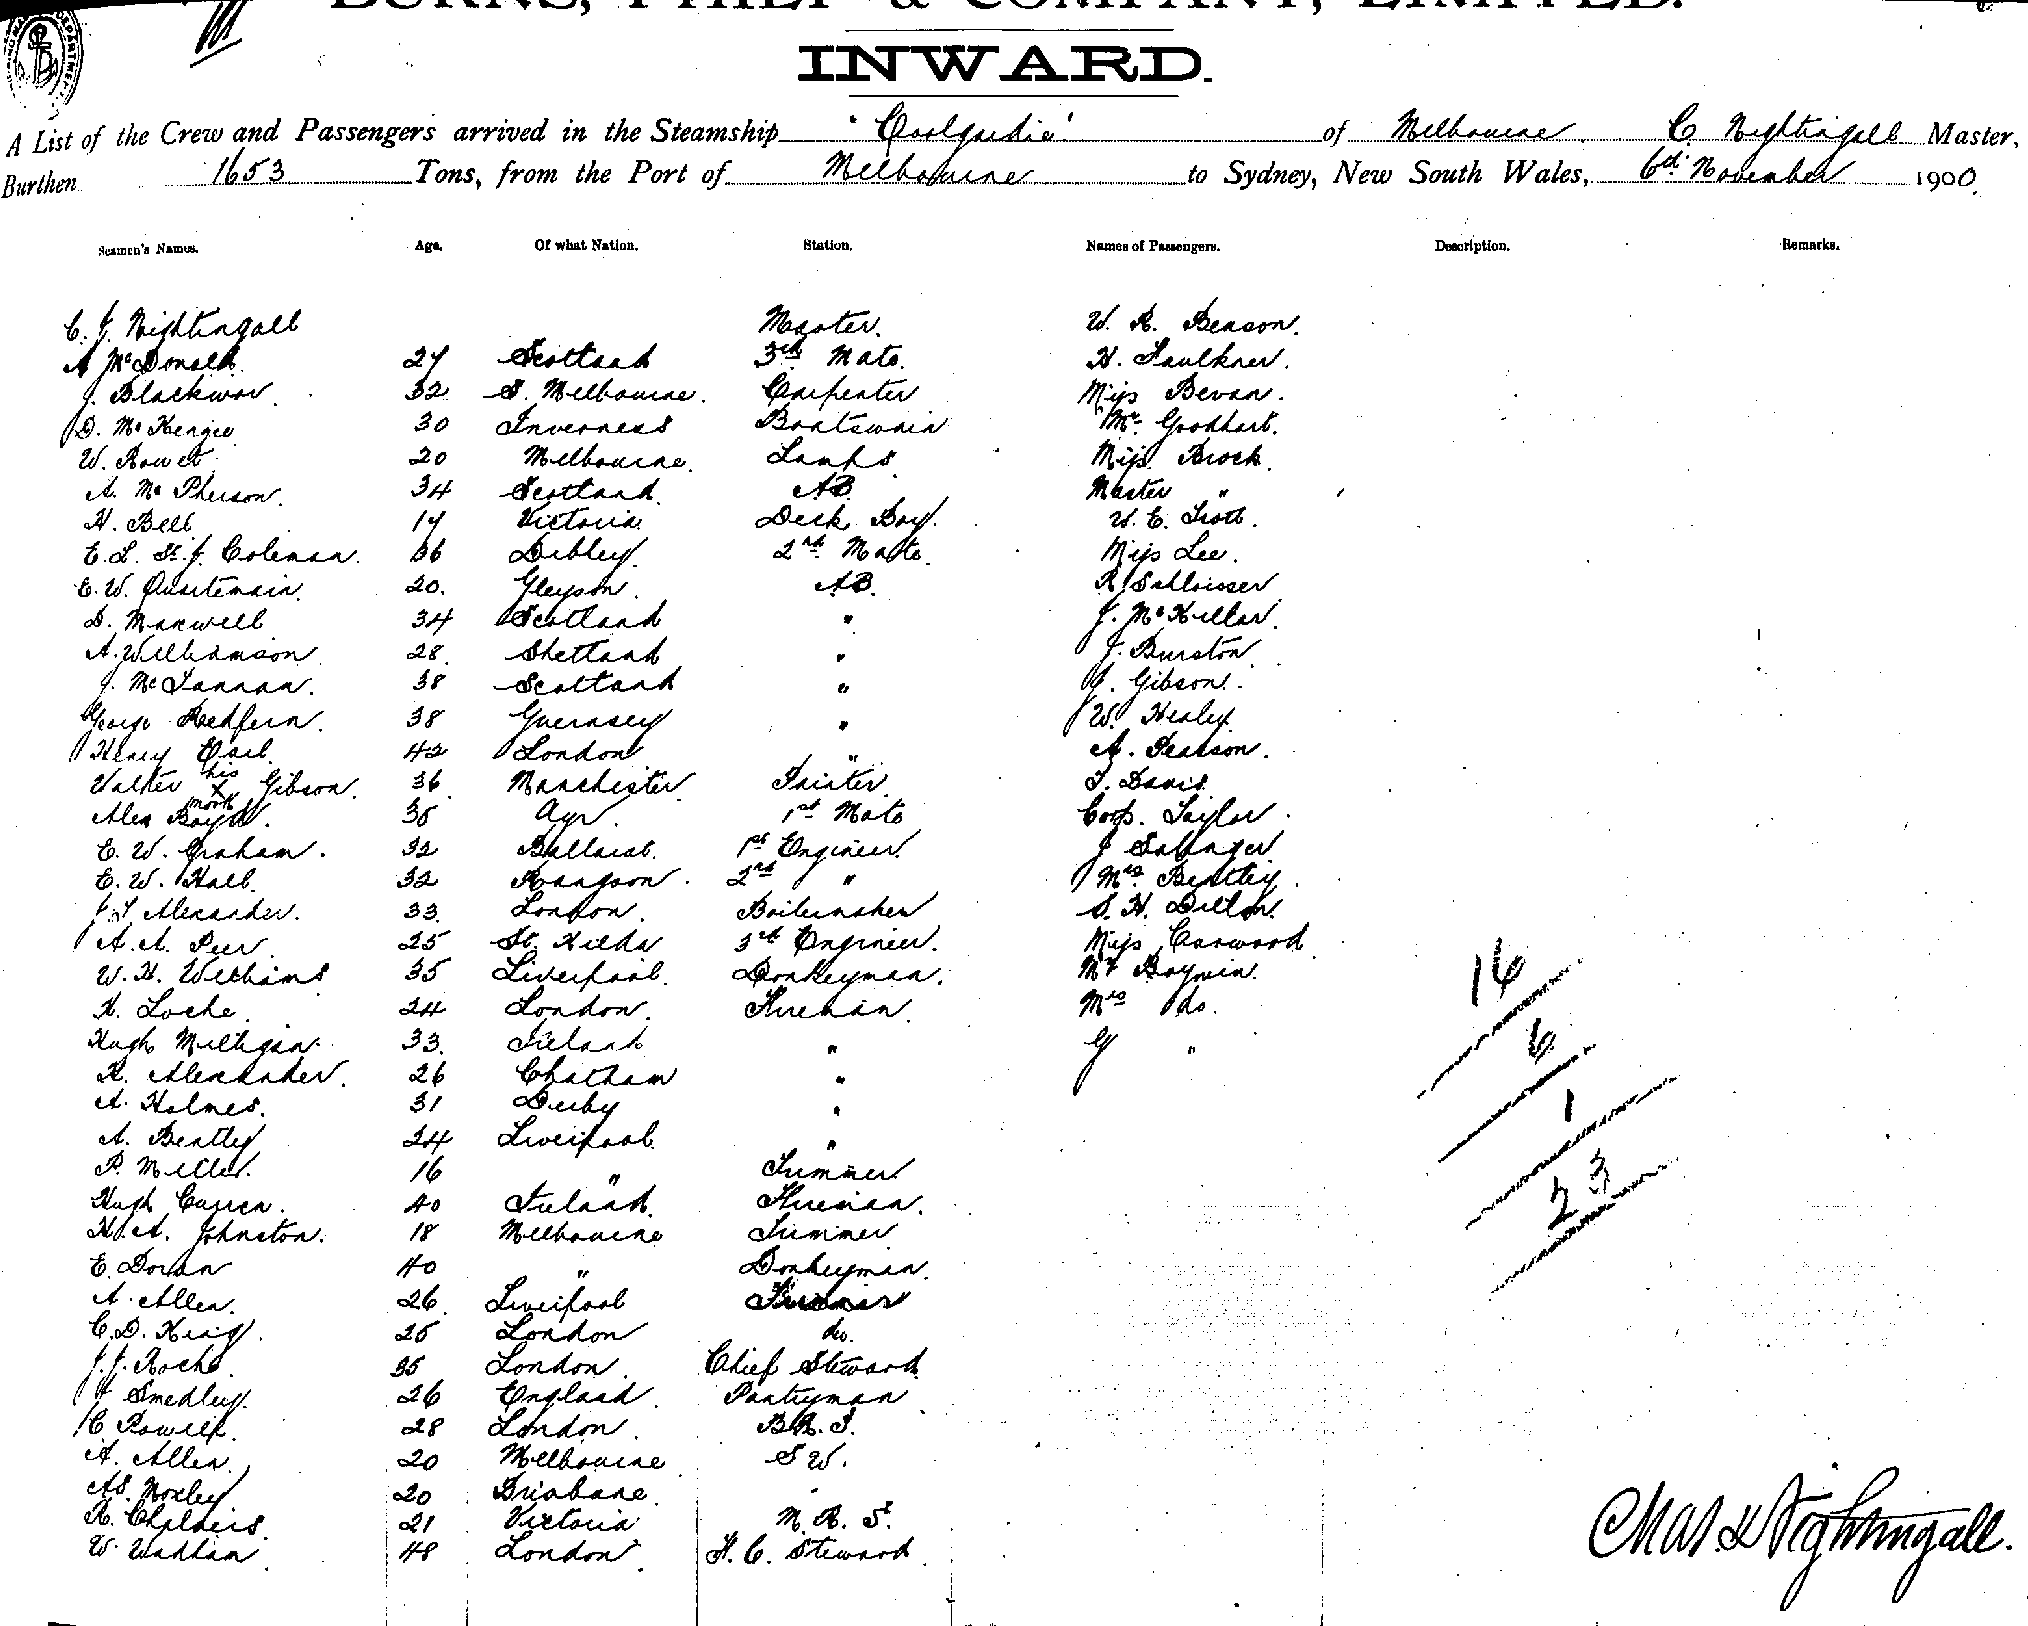 BURNS, PHILP & COMPANY, LIMITED.
INWARD.
A List of the Crew and Passengers arrived in the Steamship "Coolgardie" of Melbourne C. Nightingall Master,
Burthen 1653 Tons, from the Port of Melbourne to Sydney, New South Wales, 6th November 1900.
Seamen's Names. Age. Of what Nation. Station. Names of Passengers. Description. Remarks.
C. J. Nightingall Master. W. R. Benson.
A McDonald. 27 Scotland 3rd Mate. H. Faulkner.
J. Blackwor. 32. S. Melbourne. Carpenter Miss Bevan.
D. McKenzie 30 Inverness Boatswain Mr. Goodhart.
W. 20 Melbourne. Lamps Miss Brock.
A. McPherson. 34 Scotland. AB. Master "
H. Bell 17 Victoria Deck Boy. W. E. Trott.
E. L. St. J. Coleman. 36 2nd Mate. Miss Lee.
E. W. Quartemain. 20. AB.
D. Maxwell 34 Scotland " J. McKellar.
A. Williamson 28. Shetland " J. Burston
J. McLannan. 38 Scotland " G. Gibson.
George Redfern. 38 Guernsey " W. Healey.
Henry 42 London " A. Pearson.
Walter his X mark Gibson. 36 Manchester Painter. T. Davis.
Alex Boyd. 35 Ayr. 1st Mate Corp. Taylor.
E. W. Graham. 32 Ballarat. 1st Engineer. J Salinger
E. W. Hall. 32 Rangoon. 2nd " Mrs. Bentley.
J. T. Alexander. 33. London. Boilermaker S. H. Dillon.
A. A. Peer. 25 St. Kilda 3rd Engineer. Miss Carwood
W. H. Williams 35 Liverpool. Donkeyman. Mr
H. Locke. 24 London. Fireman. Mrs do.
Hugh Milligan. 33. Ireland " G "
R. Alexander. 26 Chatham "
A. Holmes. 31 Derby "
A. Bentley 24 Liverpool. "
P. Miller. 16 " Trimmer
Hugh Curren. 40 Ireland. Fireman.
H. A. Johnston. 18 Melbourne Trimmer
E. Doran 40 " Donkeyman.
A. Allen. 26. Liverpool
C. D. King. 25 London do.
J. J. Roche. 35 London. Chief Steward
F Smedley. 26 England. Pantryman
C. Powell. 28 London. B.R.S.
A. Allen. 20 Melbourne SW.
AS. Moxley 20 Brisbane. "
R. Chalmers. 21 Victoria M. R. S.
W. Wadham 48 London. F. C. Steward
16
6
1
23
Chas. J Nightingall.